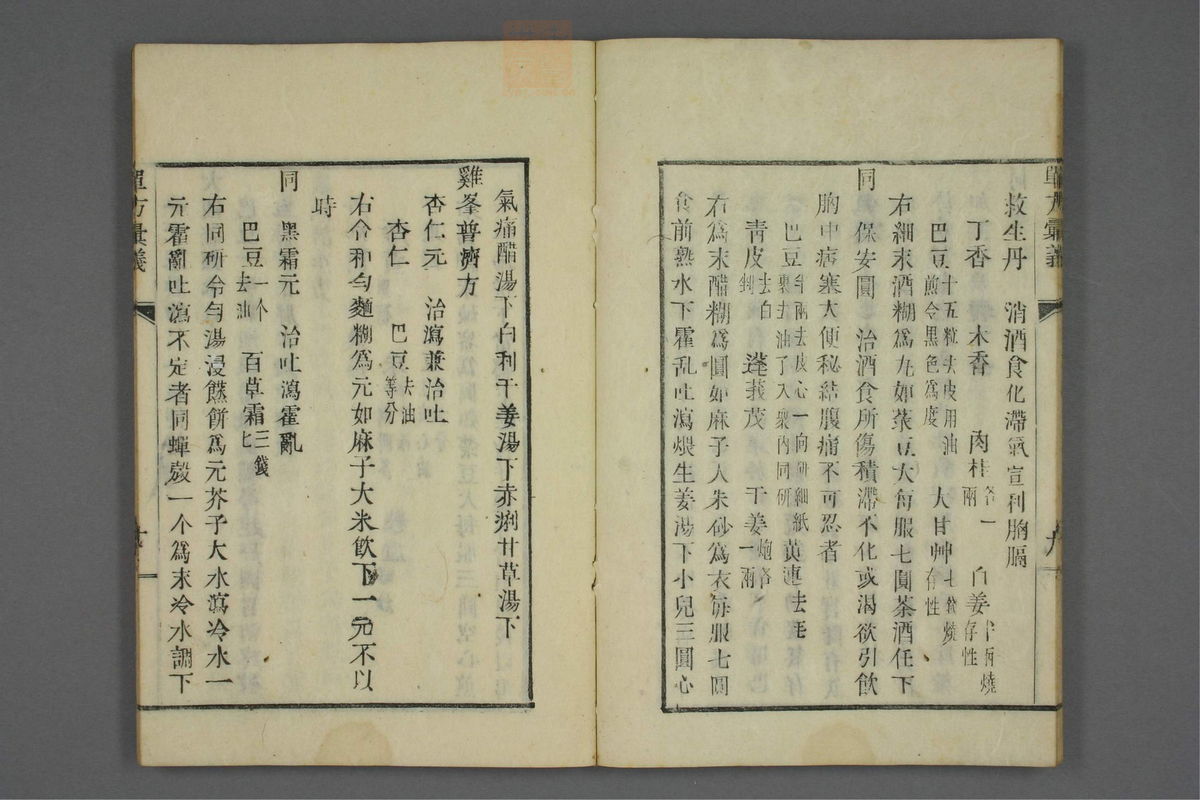 救生丹 消酒食化滯氣宣利胸膈
丁香 木香 肉桂各一兩 白姜半兩燒存性
巴豆十五粒去皮用油煎令黑色爲度 大甘艸七錢燒存性
右細末酒糊爲丸如菉豆大每服七圓茶酒任下
同 保安圓 治酒食所傷積滯不化或渴欲引飮
胸中痞塞大便秘結腹痛不可忍者
巴豆半兩去皮心一向研細紙裹去油了入衆內同研 黃連去毛
靑皮去白剉 蓬莪茂 干姜炮各一兩
右爲末醋糊爲圓如麻子人朱砂爲衣每服七圓
食前熟水下霍乱吐瀉煨生姜湯下小兒三圓心
氣痛醋湯下白利干姜湯下赤痢甘草湯下
雞峯普濟方
杏仁元 治瀉兼治吐
杏仁 巴豆去油等分
右合和勻麵糊爲元如麻子大米飮下一元不以
時
同 黑霜元 治吐瀉霍亂
巴豆一个去油 百草霜三錢匕
右同研令勻湯浸蒸餅爲元芥子大水瀉冷水一
元霍亂吐瀉不定者同蟬殼一个爲末冷水調下
單方彙義
九
單方彙義